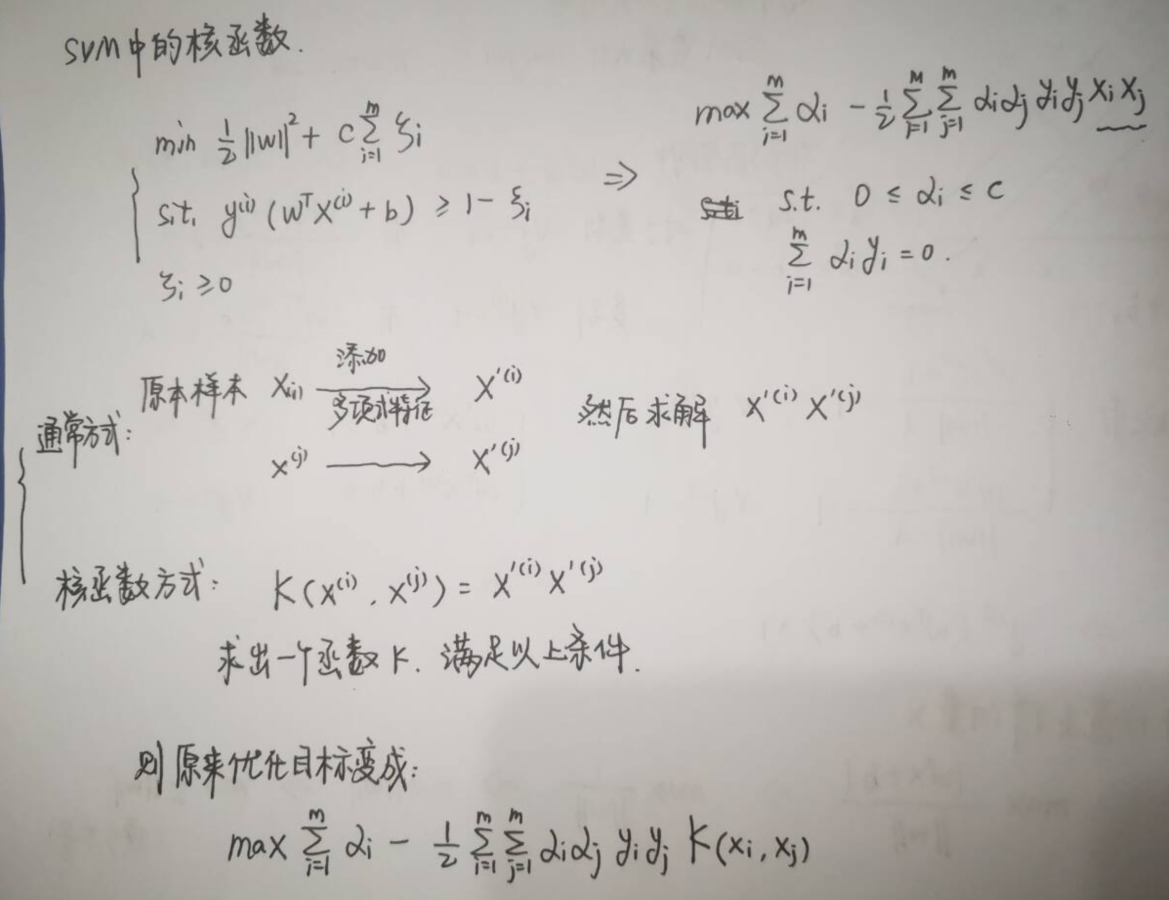 SVM中的核函数.
min 1/2 ||w||² + C ∑_{i=1}^{m} ξi
s.t. y⁽ⁱ⁾ (wᵀx⁽ⁱ⁾ + b) ≥ 1 - ξi
ξi ≥ 0
⇒
max ∑_{i=1}^{m} αi - 1/2 ∑_{i=1}^{m} ∑_{j=1}^{m} αiαj yiyj xixj
s.t. 0 ≤ αi ≤ C
∑_{i=1}^{m} αi yi = 0.
通常方式:
原本样本 x(i) 添加多项式特征 → x′⁽ⁱ⁾ 然后求解 x′⁽ⁱ⁾ x′⁽ʲ⁾
x⁽ʲ⁾ → x′⁽ʲ⁾
核函数方式: K(x⁽ⁱ⁾, x⁽ʲ⁾) = x′⁽ⁱ⁾ x′⁽ʲ⁾
求出一个函数K. 满足以上条件.
则原来优化目标变成:
max ∑_{i=1}^{m} αi - 1/2 ∑_{i=1}^{m} ∑_{j=1}^{m} αiαj yiyj K(xi, xj)